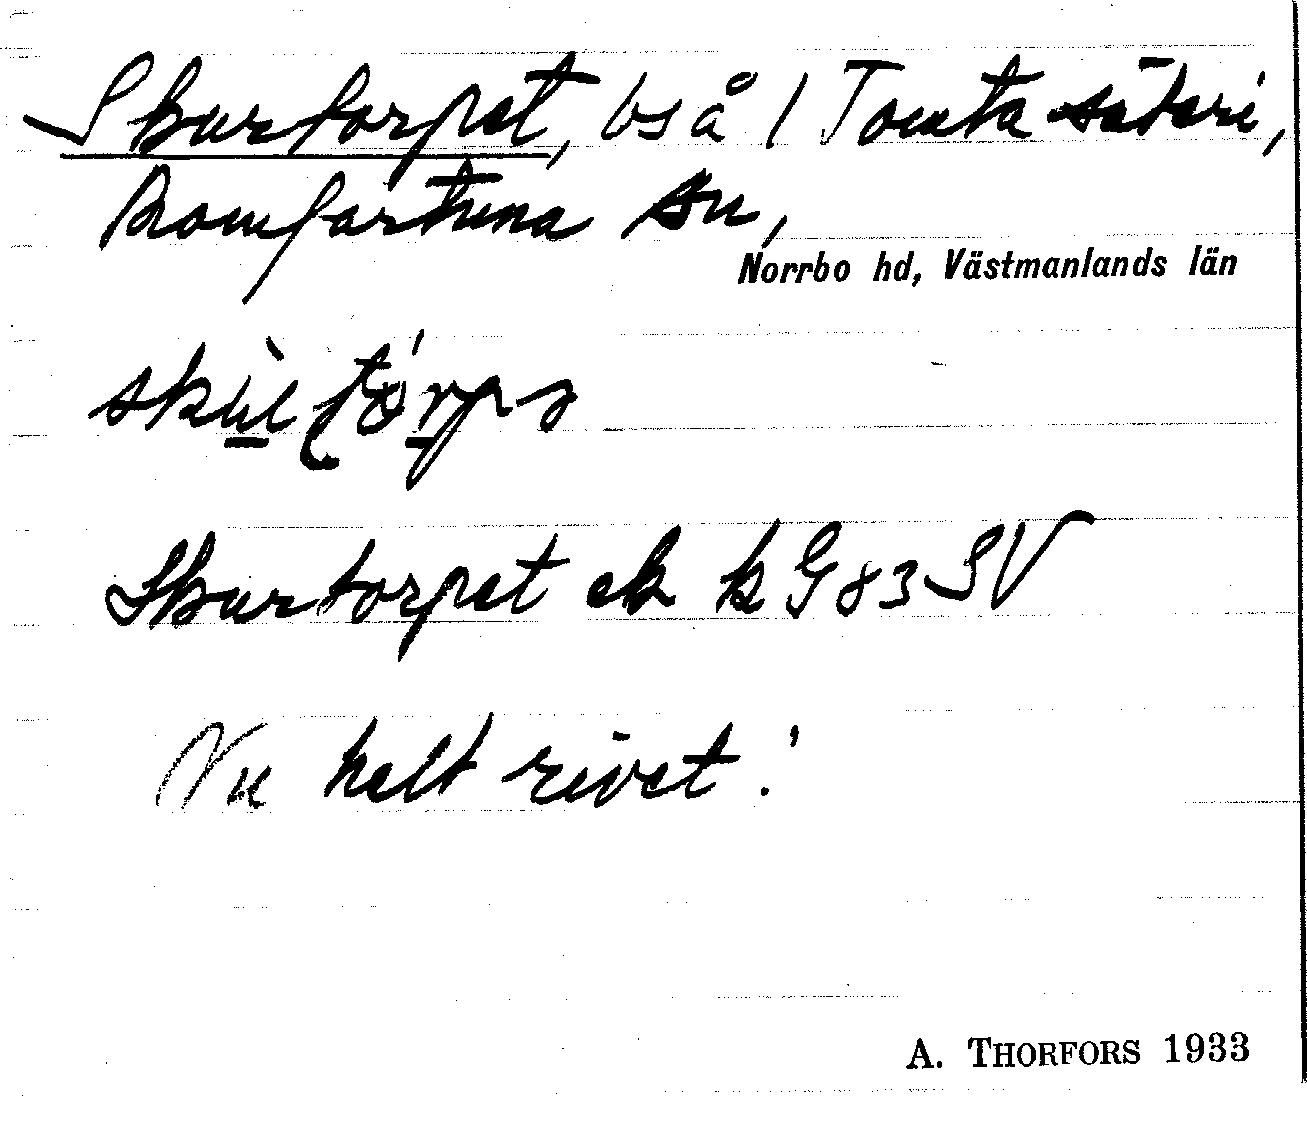 Skurtorpet, bs å / Tomta säteri,
Romfartuna sn,
Norrbo hd, Västmanlands län
Skurtorpet ek k G 83 SV
Nu helt rivet!
A. THORFORS 1933